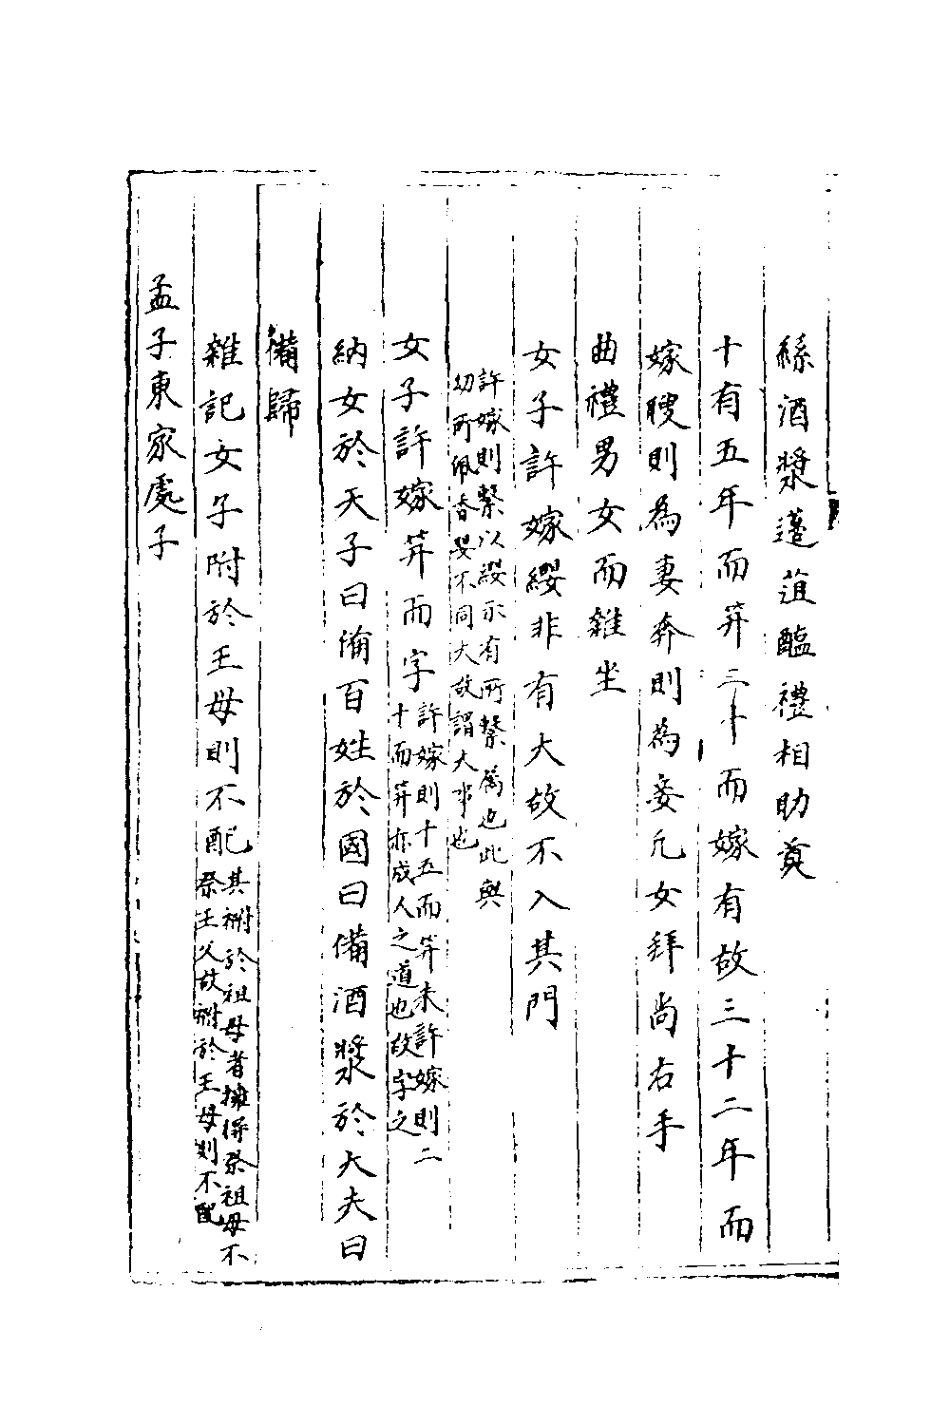 絲酒漿籩菹醢禮相助奠
十有五年而笄二十而嫁有故二十三年而
嫁聘則為妻奔則為妾凢女拜尚右手
曲禮男女而雜坐
女子許嫁纓非有大故不入其門
許嫁則繫以纓示有所繫屬也此與
幼所佩香纓不同大故謂大事也
女子許嫁笄而字許嫁則十五而笄未許嫁則二
十而笄亦成人之道也故字之
納女於天子曰備百姓於國曰備酒漿於大夫曰
備歸
雜記女子附於王母則不配其祔於祖母者擁得祭祖母不
祭王父故祔於王母則不配
孟子東家處子